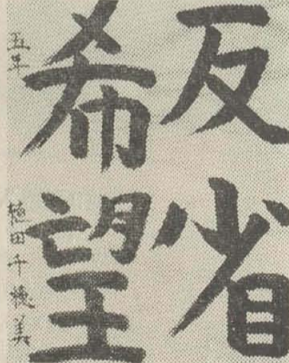 反省
希望
五年
植田千穂美